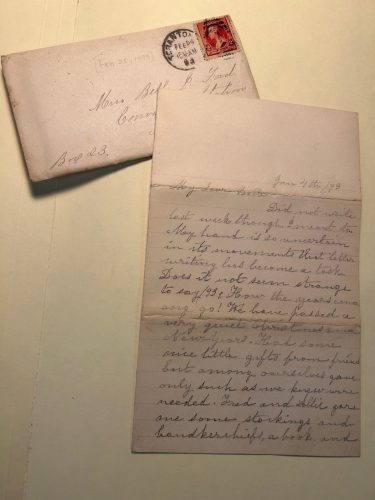 SCRANTON
FEB 24
93
Miss Belle B. Ford
Station
Box 23.
Jan 4th /93
My dear Belle
Did not write
last week though I meant to.
My hand is so uncertain
in its movements that letter
writing has become a task
Does it not seem strange
to say /93? How the years come
and go! We have passed a
very quiet Christmas and
New Years. Had some
nice little gifts from friends
but among ourselves gave
only such as we knew were
needed. Fred and Lollie gave
me some stockings and
handkerchiefs, a book and